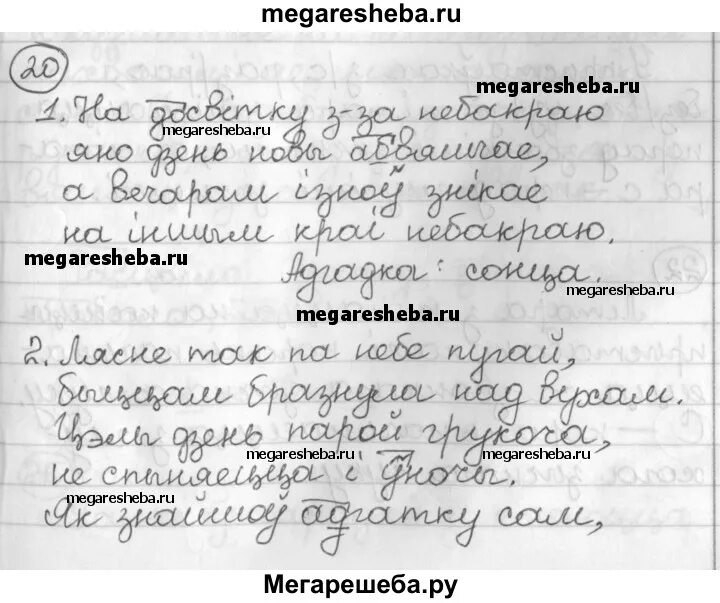 megaresheba.ru
20
megaresheba.ru
1. На досвітку з-за небакраю
megaresheba.ru
яно дзень новы абвяшчае,
megaresheba.ru
а вечарам ізноў знікае
megaresheba.ru
на іншым краі небакраю.
megaresheba.ru
22
Адгадка: сонца.
megaresheba.ru
megaresheba.ru
2. Лясне так па небе пугай,
быццам бразнула над вухам.
megaresheba.ru
Цэлы дзень парой грукоча,
megaresheba.ru
не спыняецца і ўночы.
megaresheba.ru
megaresheba.ru
Як знайшоў адгатку сам,
Мегарешеба.ру